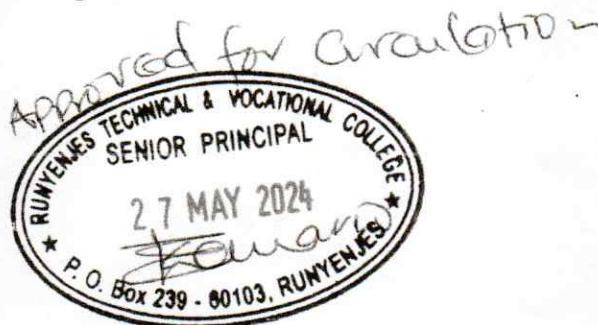 Approved for Circulation
RUNYENJES TECHNICAL & VOCATIONAL COLLEGE
SENIOR PRINCIPAL
27 MAY 2024
★ P. O. Box 239 - 60103, RUNYENJES ★